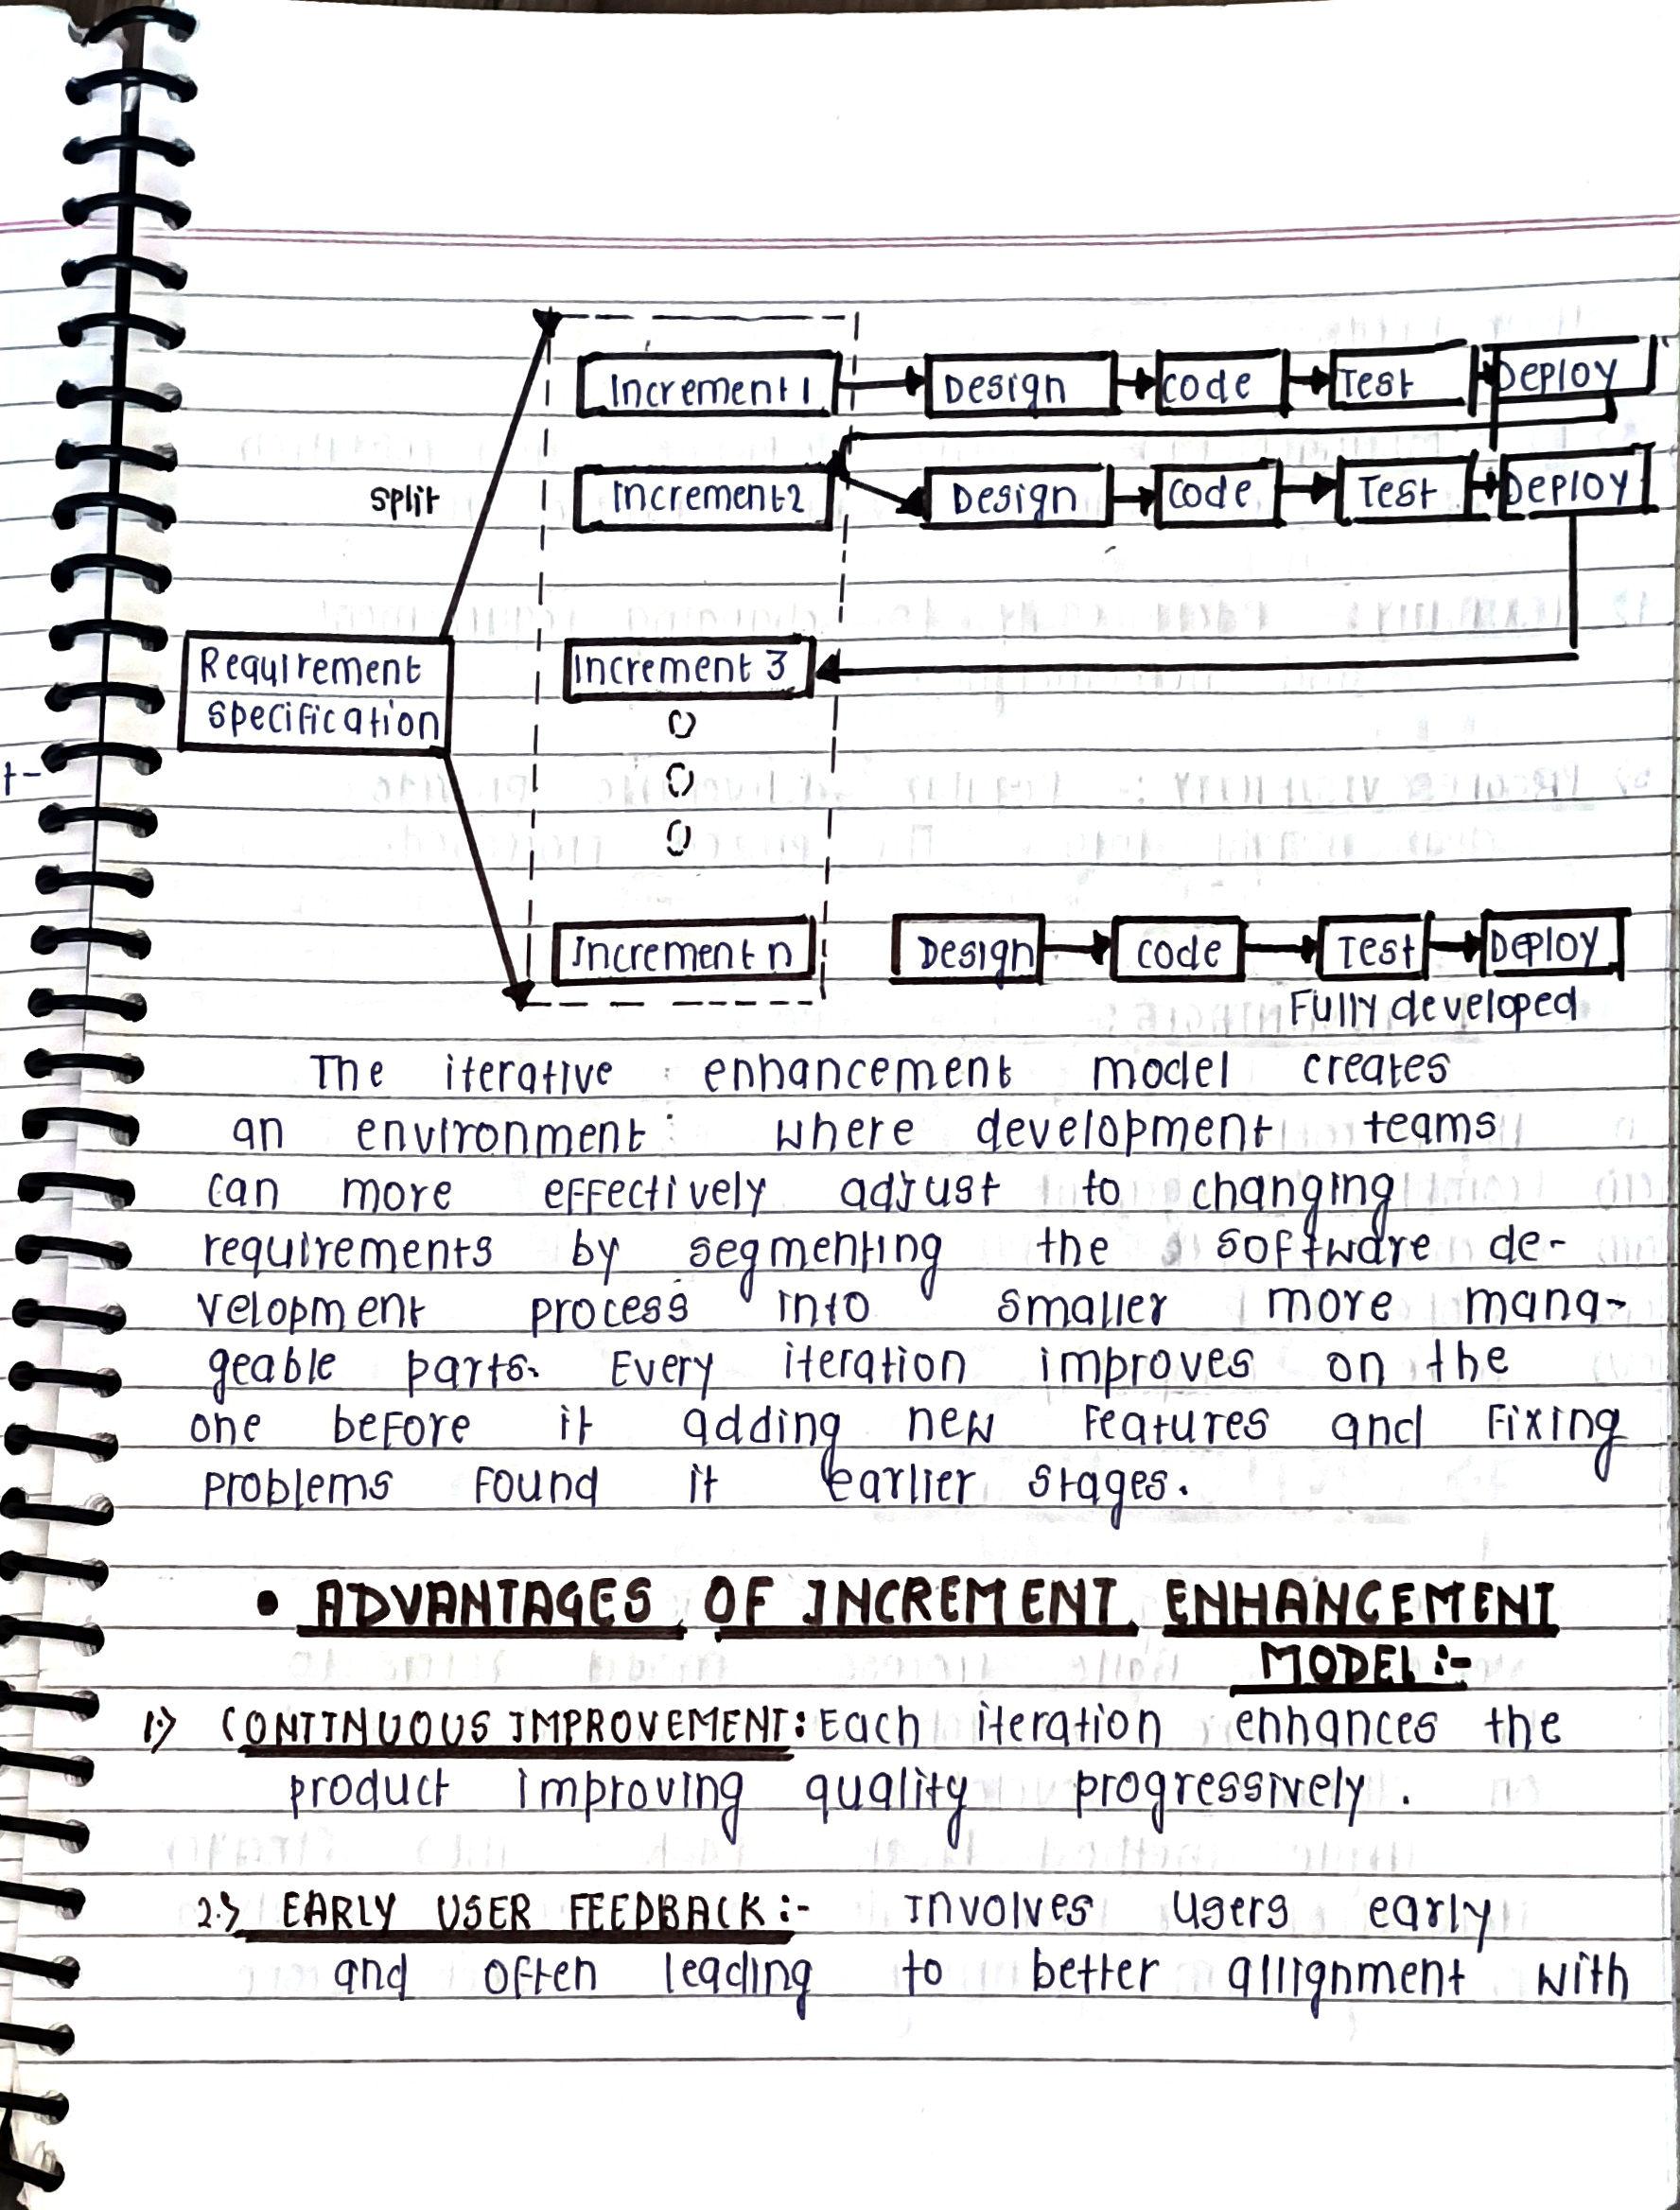 Increment 1 Design code Test Deploy
split
Increment 2 Design code Test Deploy
Requirement
specification
Increment 3
t-
Increment n Design code Test Deploy
Fully developed
The iterative enhancement model creates
an environment where development teams
can more effectively adjust to changing
requirements by segmenting the software de-
velopment process into smaller more mana-
geable parts. Every iteration improves on the
one before it adding new features and fixing
problems found it earlier stages.
• ADVANTAGES OF INCREMENT ENHANCEMENT
MODEL :-
1.> CONTINUOUS IMPROVEMENT: Each iteration enhances the
product improving quality progressively.
2.> EARLY USER FEEDBACK :- Involves users early
and often leading to better allignment with